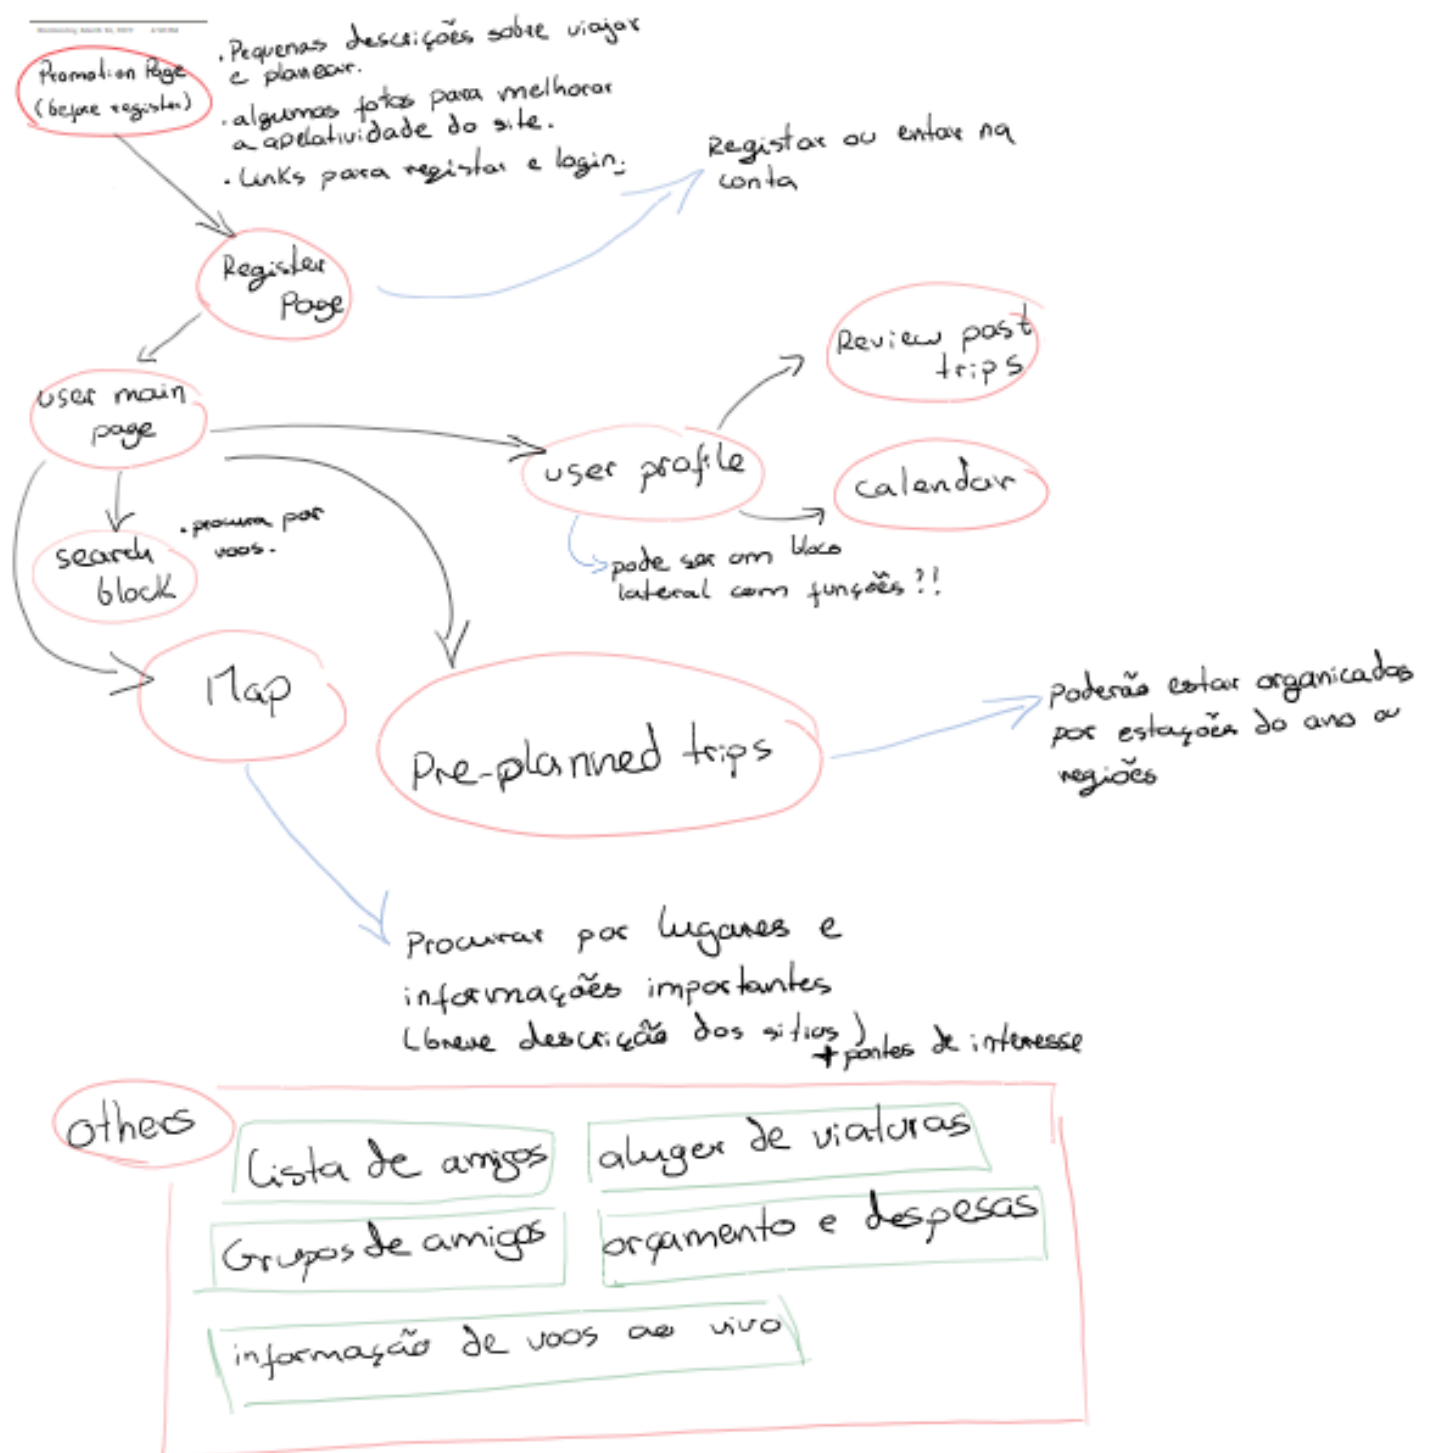 Promotion Page
(before register)
. Pequenas descrições sobre viajar
e planear.
. algumas fotos para melhorar
a apelatividade do site.
. Links para registar e login.
Registar ou entar na
conta
Register
Page
user main
page
Review past
trips
user profile
calendar
search
block
. procura por
voos.
pode ser um bloco
lateral com funções?!
Map
Pre-planned trips
Poderão estar organicadas
por estações do ano ou
regiões
Procurar por lugares e
informações importantes
(breve descrição dos sitios)
+ pontes de interesse
others
Lista de amigos
aluger de viaturas
Grupos de amigos
orçamento e despesas
informação de voos ao vivo